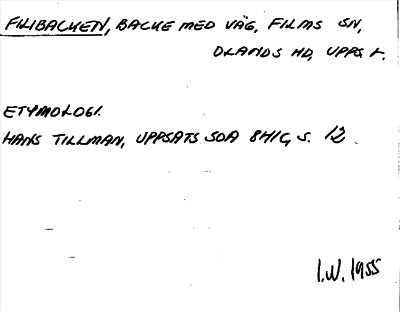 FILIBACKEN, BACKE MED VÄG, FILMS SN,
OLANDS HD, UPPS L.
ETYMOLOGI.
HANS TILLMAN, UPPSATS SOA 8H1C, S. 12.
I.W. 1955